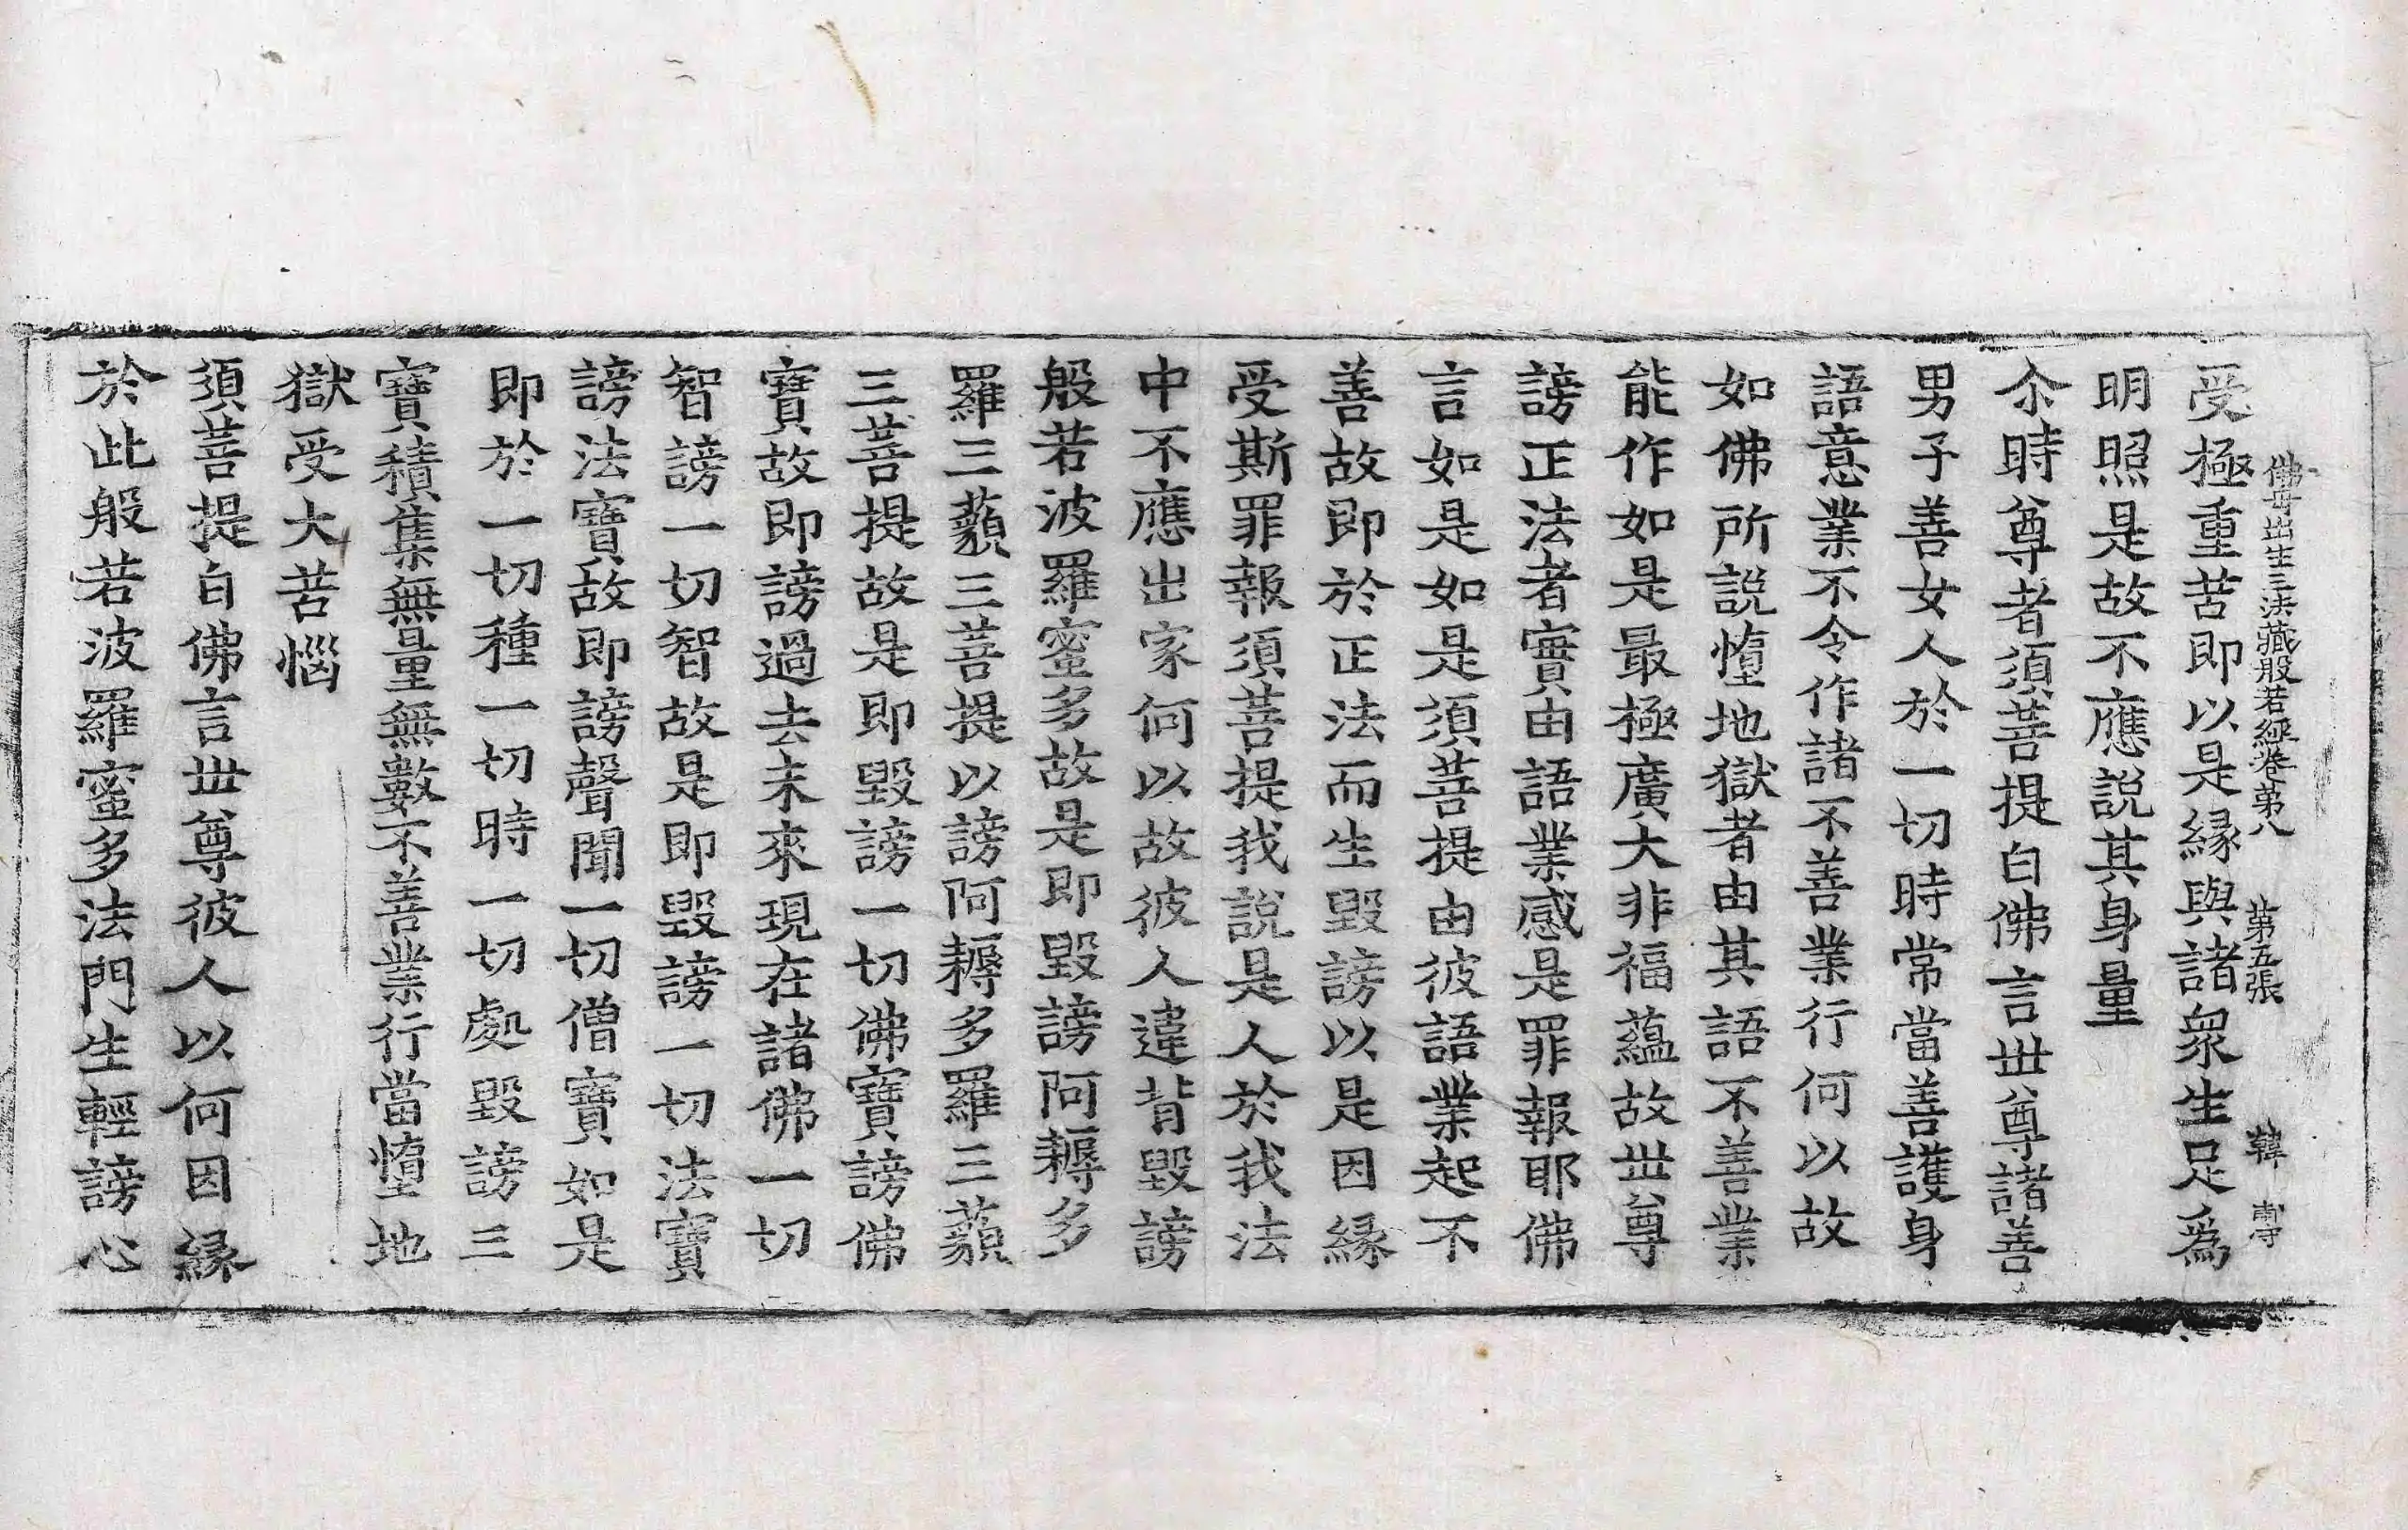 佛母出生三法藏般若經卷第八 第五張 韓
受極重苦即以是緣與諸衆生足爲
明照是故不應說其身量
尒時尊者須菩提白佛言世尊諸善
男子善女人於一切時常當善護身
語意業不令作諸不善業行何以故
如佛所說墮地獄者由其語不善業
能作如是最極廣大非福蘊故世尊
謗正法者實由語業感是罪報耶佛
言如是如是須菩提由彼語業起不
善故即於正法而生毀謗以是因緣
受斯罪報須菩提我說是人於我法
中不應出家何以故彼人違背毀謗
般若波羅蜜多故是即毀謗阿耨多
羅三藐三菩提以謗阿耨多羅三藐
三菩提故是即毀謗一切佛寶謗佛
寶故即謗過去未來現在諸佛一切
智謗一切智故是即毀謗一切法寶
謗法寶故即謗聲聞一切僧寶如是
即於一切種一切時一切處毀謗三
寶積集無量無數不善業行當墮地
獄受大苦惱
須菩提白佛言世尊彼人以何因緣
於此般若波羅蜜多法門生輕謗心